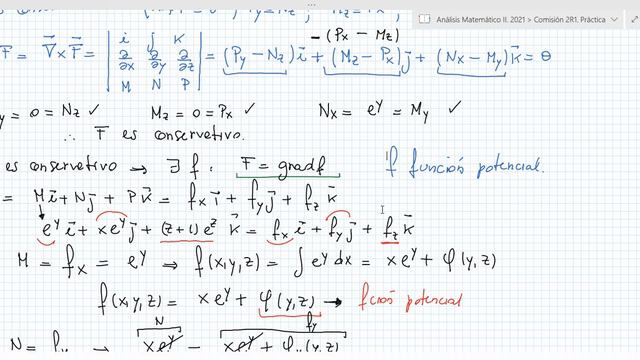 Análisis Matemático II. 2021 > Comisión 2R1. Práctica
- (Px - Mz)
F = ∇ x F = | i j k ∂/∂x ∂/∂y ∂/∂z M N P | = (Py - Nz) i + (Mz - Px) j + (Nx - My) k = θ
y = 0 = Nz ✓ Mz = 0 = Px ✓ Nx = e^y = My ✓
∴ F es conservativo.
es conservativo → ∃ f : F = grad f f función potencial.
= M i + N j + P k = fx i + fy j + fz k
e^y i + x e^y j + (z+1) e^z k = fx i + fy j + fz k
M = fx = e^y ⇒ f(x,y,z) = ∫ e^y dx = x e^y + φ(y,z)
f(x,y,z) = x e^y + φ(y,z) → fción potencial
N fy
N = fy → x e^y = x e^y + φy(y,z)